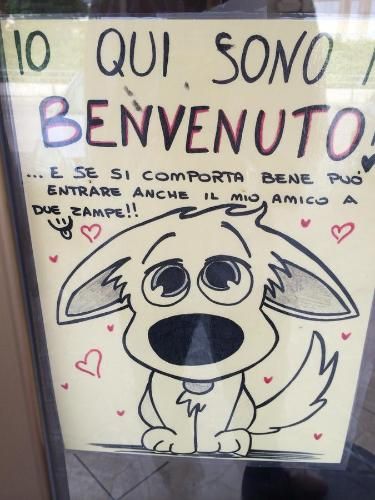 IO QUI SONO
BENVENUTO!
... E SE SI COMPORTA BENE PUÓ
ENTRARE ANCHE IL MIO AMICO A
DUE ZAMPE!!